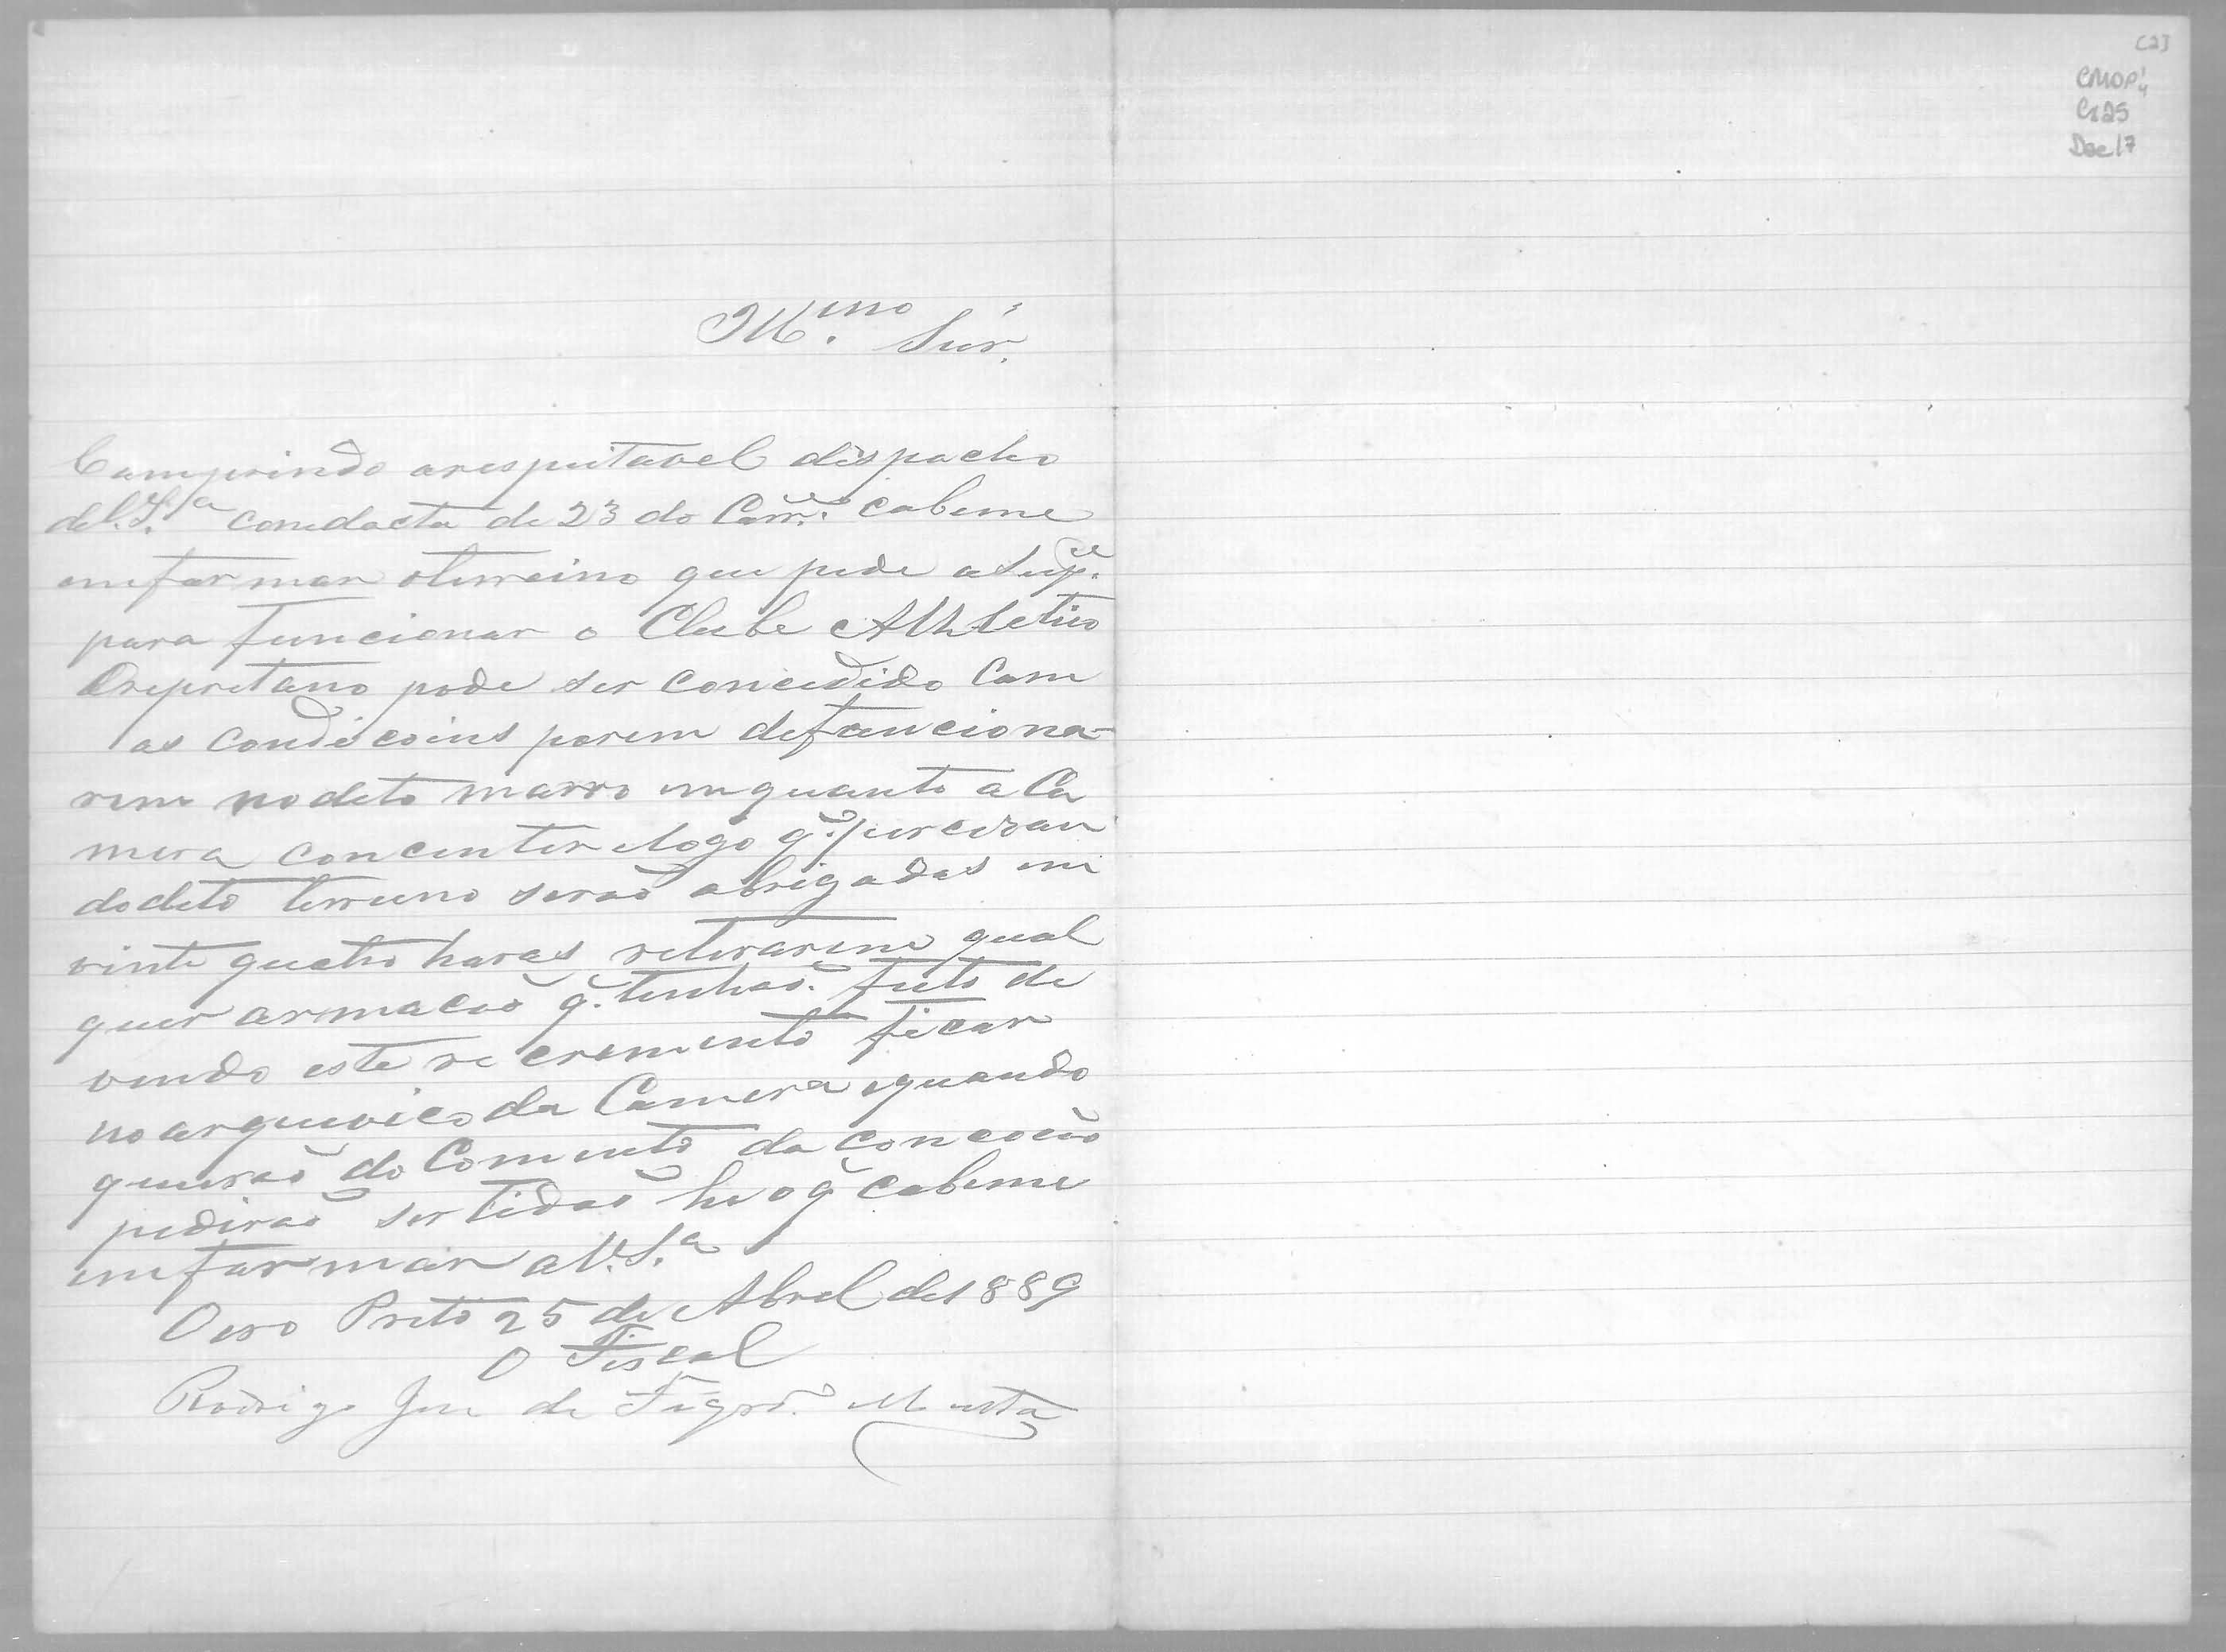 [2]
CMOP
Cx25
Doc 17
Ill.mo Snr.
Comprindo arespeitavel dispacho
de V.S.a comdacta de 23 do Corr.e cabeme
emformar oterreino que pede a Sup.e
para funcionar o Clube Athletico
Orepretano pode ser concedido Com
as condicoins porem defunciona-
rem no dito morro emquanto a Ca
mera concenter elogo q. percizar
do dito terreno serão obrigados em
vinte quatro horas retirarem qual
quer armacão q. tenhão feito de
vendo este recremento ficar
no arquivico da Camera equando
queirão do Comento da concecão
pedirão sertidão he o q cabeme
emformar a V.S.a
Oero Preto 25 de Abrel de 1889
O Fiscal
Rodrigo José de Figrd.o Murta